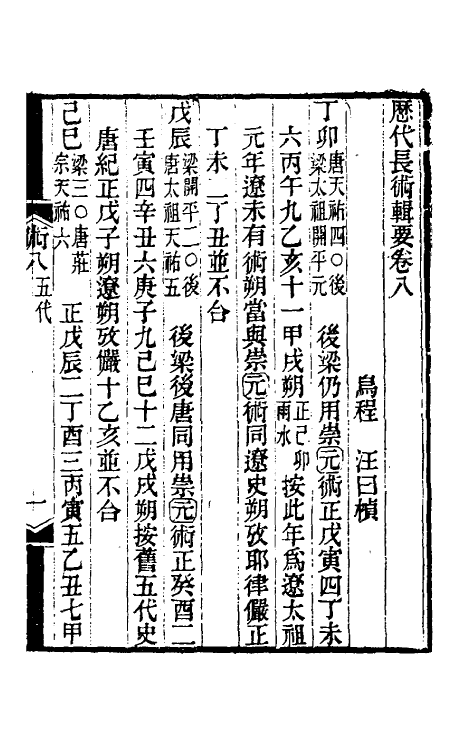 歷代長術輯要卷八
烏程　汪曰楨
丁卯唐天祐四○後梁太祖開平元　後梁仍用崇元術正戊寅四丁未
六丙午九乙亥十一甲戌朔正己卯雨水按此年爲遼太祖
元年遼未有術朔當與崇元術同遼史朔攷耶律儼正
丁未　二丁丑並不合
戊辰梁開平二○後唐太祖天祐五　後梁後唐同用崇元術正癸酉二
壬寅四辛丑六庚子九己巳十二戊戌朔按舊五代史
唐紀正戊子朔遼朔攷儼十乙亥並不合
己巳梁三○唐莊宗天祐六　正戊辰二丁酉三丙寅五乙丑七甲
術八五代　一